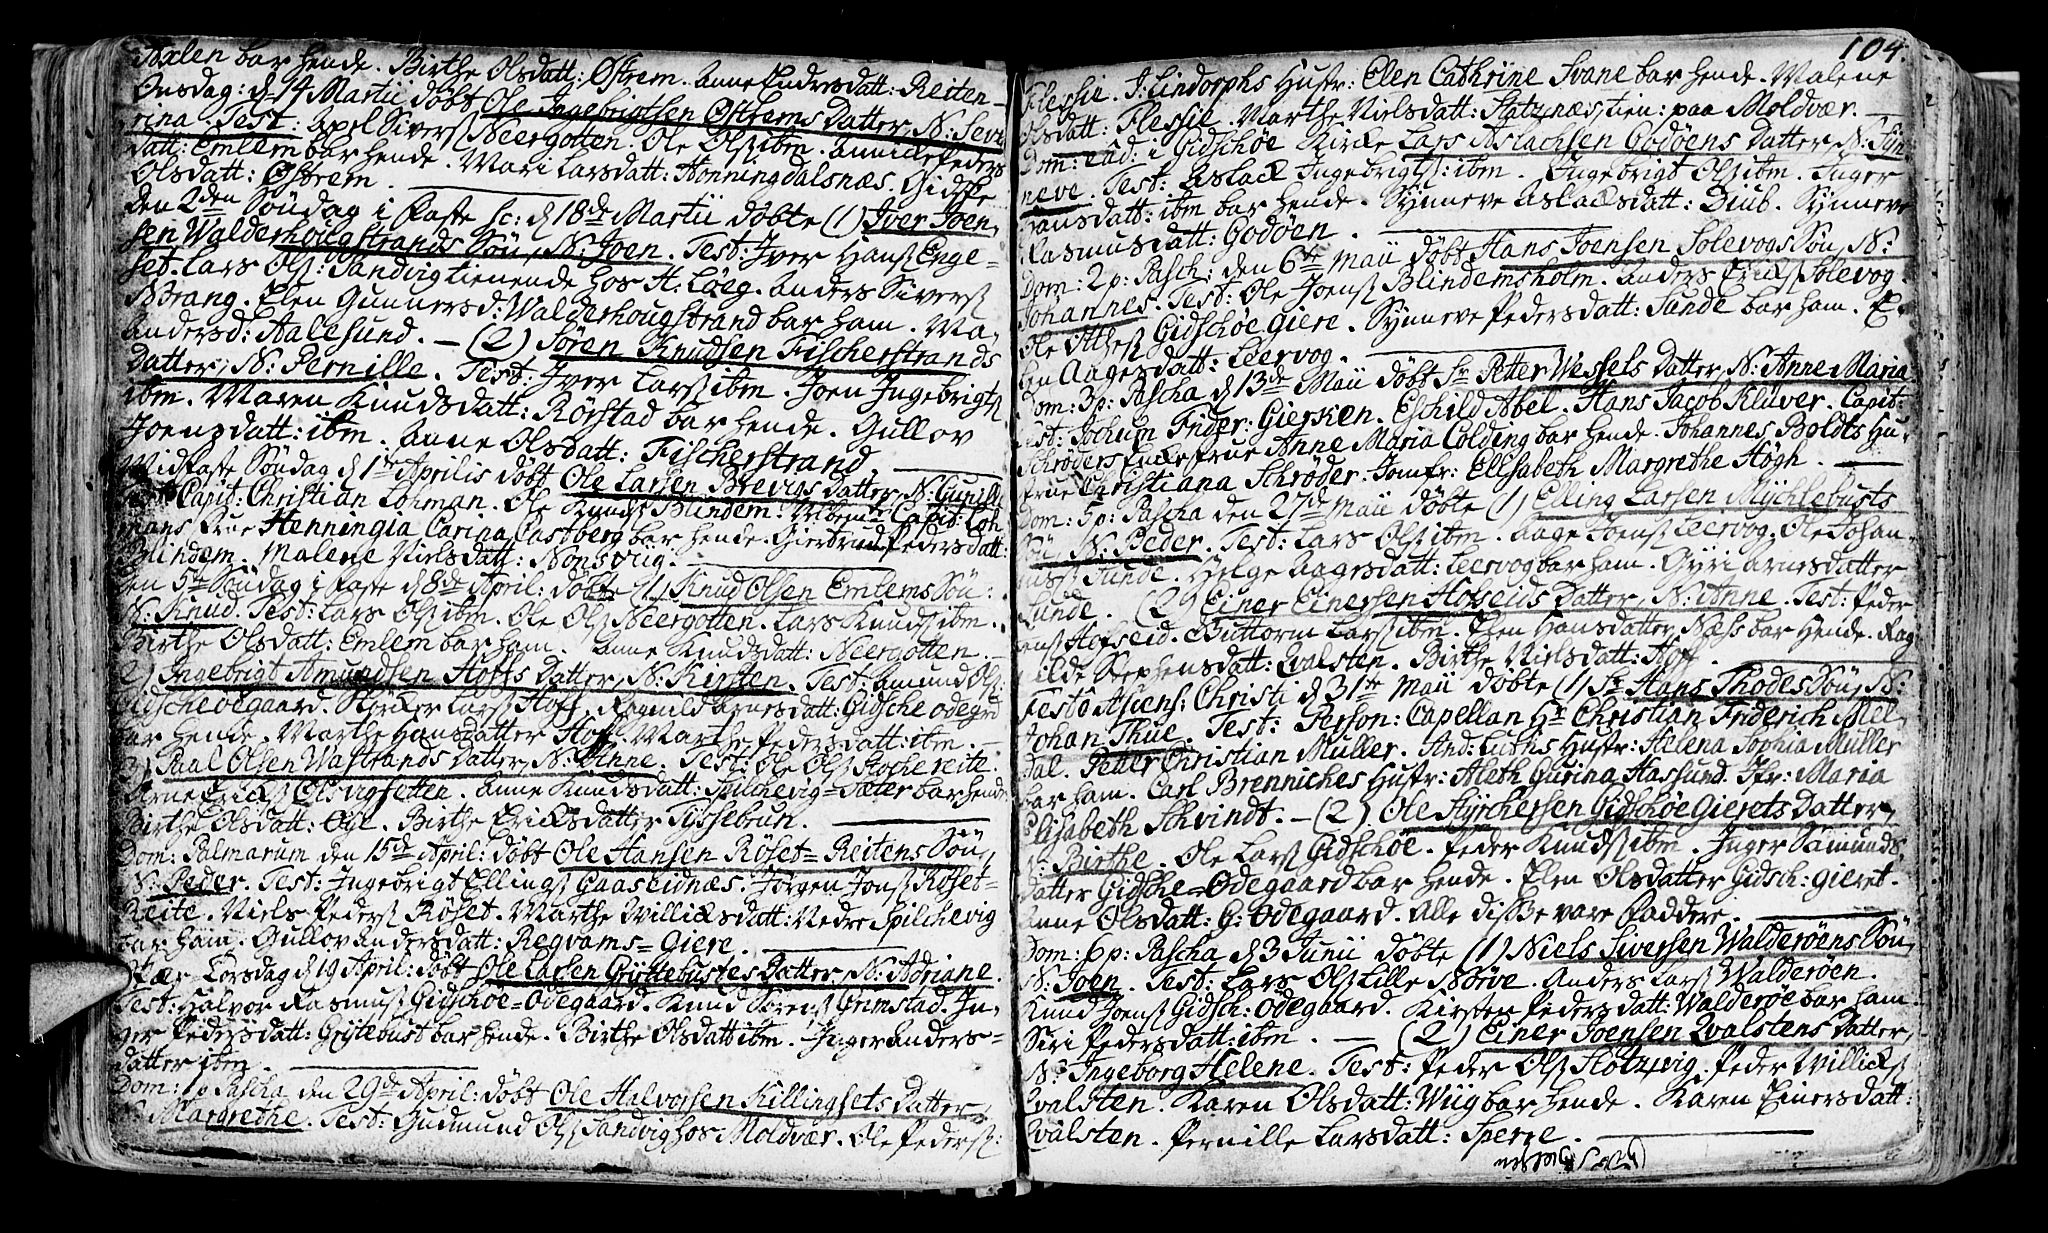 Aalen bar hende. Birthe Olsdatt: Østrem. Anne Endresdatt: Reiten
Onsdag: d 14 Martii døbt Ole Ingebrigtsen Østrems Datter, N: Seve
rina. Test: Axel Siverſ Neergotten. Ole Olſ ibm. Annicke Peders
datt: Emlem bar hende. Mari Larsdatt: Honningdalsnæs. Gidske
Olsdatt: Østrem.
Den 2den Søndag i Faste sc: d 18de Martii døbte (1) Iver Joen
sen Walderhougstrands Søn, N: Joen. Test: Iver Hanſ Enge=
set. Lars Olſ: Sandvig tienende hos H. Løeg. Anders Siverſ
Norang. Elen Gunnersd: Walderhougstrand bar ham. Ma
Andersd: Aalesund. — (2) Søren Knudsen Fischerstrands
Datter, N: Pernille. Test: Iver Larſ ibm. Joen Ingebrigtſ
ibm. Maren Knudsdatt: Rørstad bar hende. Gullov
Joensdatt: ibm. Anne Olsdatt: Fischerstrand.
Midfaste Søndag d 1te Aprilis døbt Ole Larsen Brevigs Datter, N: Gunild
Capit: Christian Lohman. Ole Knudſ Blindem. Capit: Loh
mans Frue Henningia Carina Castberg bar hende. Giertrud Pedersdatt:
Blindem. Malene Nielsdatt: Nonsvüg.
Den 5te Søndag i Faste d 8de April: døbte (1) Knud Olsen Emlems Søn:
N: Knud. Test: Lars Olſ ibm. Ole Olſ Neergotten. Lars Knudſ ibm.
Birthe Olsdatt: Emlem bar ham. Anne Knudsdatt: Neergotten.
2) Ingebrigt Amundsen Hoffs Datter, N: Kirsten. Test: Amund Olſ:
Gidscheødegaard. Kørcker Larſ Hoff. Ragnild Arnesdatt: Gidsche ødegrd
bar hende. Marthe Hansdatter Hoff. Marthe Pedersdatt: ibm.
3) Paul Olsen Wastrands Datter, N: Anne. Test: Ole Olſ Hochereite:
Arne Erickſ Olsvigsetten. Anne Knudsdatt: Spilchevig=Sæter bar hende
Birthe Olsdatt: Øgl. Birthe Ericksdatter Tyssebun.
Dom: Palmarum den 15de April: døbt Ole Hansen Røset=Reitens Søn,
N: Peder. Test: Ingebrigt Ellingſ Gaaseidnæs. Jørgen Jonſ Røset=
Reite. Niels Pederſ Røset. Marthe Willicksdatt: Nedre Spilchevig
bar ham. Gullov Andersdatt: Regvams=Giere.
Skær Torsdag d 19 April: døbt Ole Larsen Grøttebustes Datter, N: Adriane.
Test: Halvor Rasmusſ Gidschøe=Ødegaard. Knud Sørenſ Grimstad. In,
ger Pedersdatt: Gøytebust bar hende. Birthe Olsdatt ibm. Inger Anders=
datter ibm.
Dom: 1 p Pascha den 29de April: døbt Ole Halvorsen Killingsets Datter
N: Margrethe. Test: Gudmund Olſ Sandvig hos Moldvær. Ole Pederſ:
104.
Flessie. J: Lindorphs Hustr: Elen Cathrine Svane bar hende. Malene
Olsdatt: Flessie. Marthe Nielsdatt: Slatznæs tien: paa Moldvær.
Dom: ead: i Gidschøe Kircke Lars Aslachsen Godøens Datter, N: Syn
neve. Test: Aslack Ingebrigtſ: ibm. Ingebrigt Olſ ibm. Inger
Hansdatt: ibm bar hende. Synneve Aslacksdatt: Diub. Synneve
Rasmusdatt: Godøen.
Dom: 2 p: Pasch: den 6te Maii døbt Hans Joensen Solevogs Søn, N:
Johannes. Test: Ole Joenſ Blindemsholm. Anders Erickſ Solevog.
Ole Ottheſ Gidschøe giere. Synneve Pedersdatt: Sunde bar ham. E
len Aagesdatt: Leervog.
Dom: 3 p: Pascha d 13de Maii døbt Sr Petter Wessels Datter, N: Anne Maria
Test: Jochum Frider: Giersken. Eschild Abel. Hans Jacob Klüver. Capit:
Schrøders Enckefrue Anne Maria Colding bar hende. Johannes Boldts Hu
frue Christiana Schrøder. Jomfr: Elisabeth Margrethe Høgh.
Dom: 5 p: Pascha den 27de Maii døbte (1) Elling Larsen Mychlebusts
Søn, N: Peder. Test: Lars Olſ ibm. Aage Joenſ Leervog. Ole Johan
nesſ Sunde. Helge Aagesdatt: Leervog bar ham. Gyri Arnesdatter
Sunde. (2) Einer Einersen Hofseids Datter, N: Anne. Test: Peder
Hofseid. Buttorm Larſ ibm. Elen Hansdatter Næss bar hende. Rag
nilde Stephensdatt: Qvalsten. Birthe Nielsdatt: Hoff.
Festo Ascens: Christi d 31te Maii døbte (1) Sr Hans Thodes Søn, N:
Johan Thue. Test: Person: Capellan Hr Christian Friderich Mel
dal. Petter Christian Muller. And: Luths Hustr: Helena Sophia Müller
bar ham. Carl Brenniches Hustr: Aleth Gurina Haslund. Jfr: Maria
Elisabeth Schvindt. — (2) Ole Styrchersen Gidschøe Gierets Datter,
N: Birthe. Ole Larſ Gidschøe. Peder Knudſ ibm. Inger Samunds
datter Gidsche=Ødegaard bar hende. Elen Olsdatter Gidsch: gieret.
Anne Olsdatt: G: Ødegaard. Alle disse vare Faddere.
Dom: 6 p: Pascha d 3 Junii døbte (1) Niels Siversen Walderøens Søn,
N: Joen. Test: Lars Olſ Lille Nørve. Anders Larſ Walderøen.
Knud Joenſ Gidsch: Ødegaard. Kirsten Pedersdatt: Walderøe bar ham
Siri Pedersdatt: ibm. — (2) Einer Joensen Qvalstens Datter,
N: Ingeborg Helene. Test: Peder Olſ Slotzvig. Peder Willickſ
Qvalsten. Karen Olsdatt: Wiig bar hende. Karen Einersdatt:
Qvalsten. Pernille Larsdatt: Sperre.